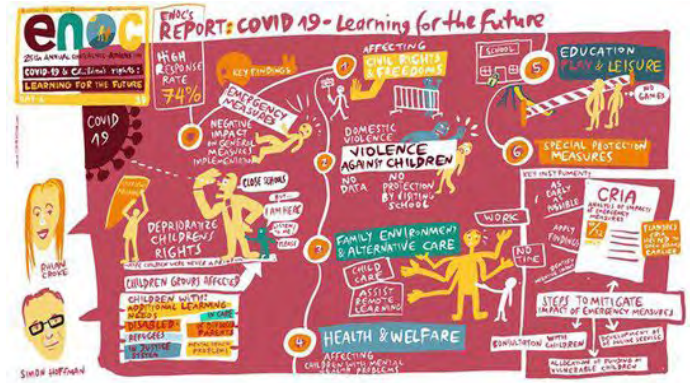 enoc
COVID-19 & Children's rights:
LEARNING FOR THE FUTURE
ENOC's
REPORT: COVID 19 - Learning for the Future
HIGH
RESPONSE
RATE
74%
KEY FINDINGS
EMERGENCY
MEASURES
NEGATIVE
IMPACT
ON GENERAL
MEASURES
IMPLEMENTATION
COVID
19
CLOSE SCHOOLS
BUT...
I AM HERE
LISTEN
TO ME
PLEASE
DEPRIORATIZE
CHILDRENS'
RIGHTS
CHILDREN GROUPS AFFECTED
CHILDREN WITH:
ADDITIONAL LEARNING
NEEDS
IN CARE
DISABLED
REFUGEES
PARENTS
IN JUSTICE
SYSTEM
MENTAL HEALTH
PROBLEMS
RHIAN
CROKE
SIMON HOFFMAN
1
AFFECTING
CIVIL RIGHTS
& FREEDOMS
2
DOMESTIC
VIOLENCE
VIOLENCE
AGAINST CHILDREN
NO
DATA
NO
PROTECTION
BY VISITING
SCHOOL
3
FAMILY ENVIRONMENT
& ALTERNATIVE CARE
WORK
NO
TIME
CHILD
CARE
ASSIST
REMOTE
LEARNING
4
HEALTH & WELFARE
AFFECTING
CHILDREN
MENTAL
HEALTH PROBLEMS
SCHOOL
5
EDUCATION
PLAY & LEISURE
NO
GAMES
6
SPECIAL PROTECTION
MEASURES
KEY INSTRUMENT:
AS
EARLY
AS
POSSIBLE
APPLY
FINDINGS
CRIA
ANALYSIS OF IMPACTS
OF EMERGENCY
MEASURES
STEPS TO MITIGATE
IMPACT OF EMERGENCY MEASURES
CONSULTATION WITH
CHILDREN
DEVELOPMENT OF
ONLINE SERVICE
ALLOCATION OF FUNDING
VULNERABLE CHILDREN